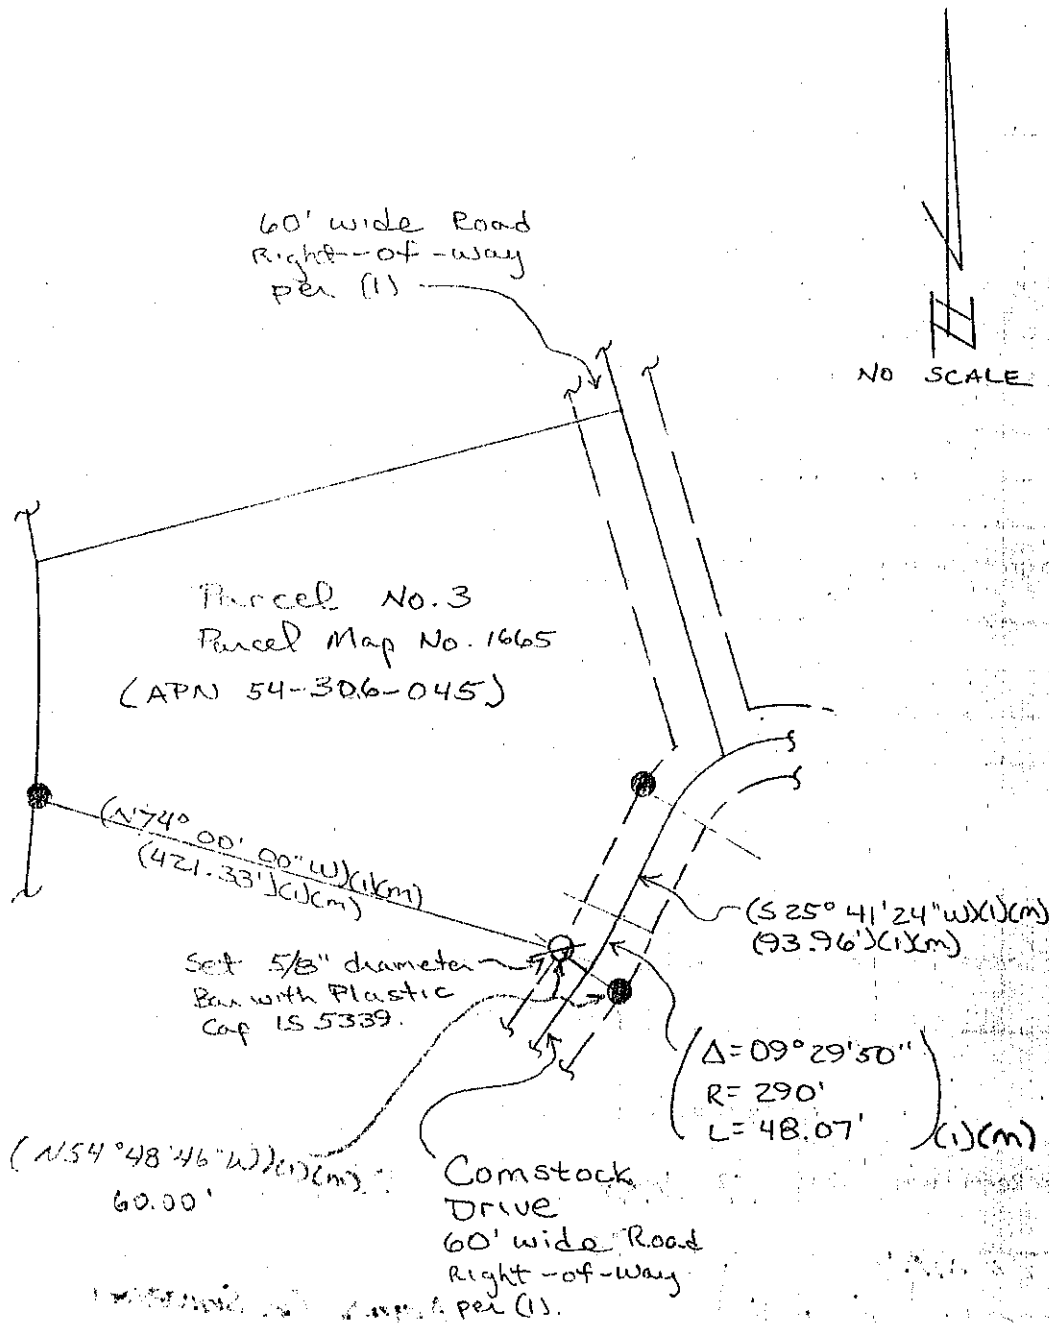 60' wide Road
Right-of-way
per (1)
NO SCALE
Parcel No. 3
Parcel Map No. 1665
(APN 54-306-045)
(N74° 00' 00" W)(1)(m)
(421.33')(1)(m)
(S 25° 41' 24" W)(1)(m)
(93.96')(1)(m)
Set 5/8" diameter
Bar with Plastic
Cap LS 5339.
Δ= 09° 29' 50"
R= 290'
L= 48.07'
(1)(m)
(N54° 48' 46" W)(1)(m)
60.00'
Comstock
Drive
60' wide Road
Right-of-Way
per (1).